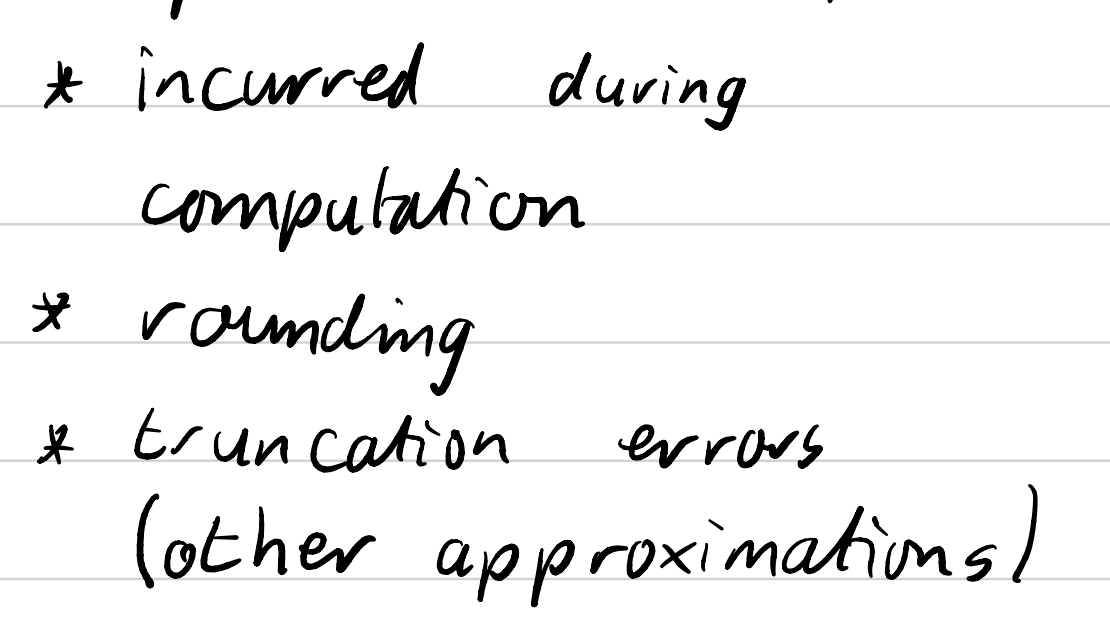 * incurred during
computation
* rounding
* truncation errors
(other approximations)